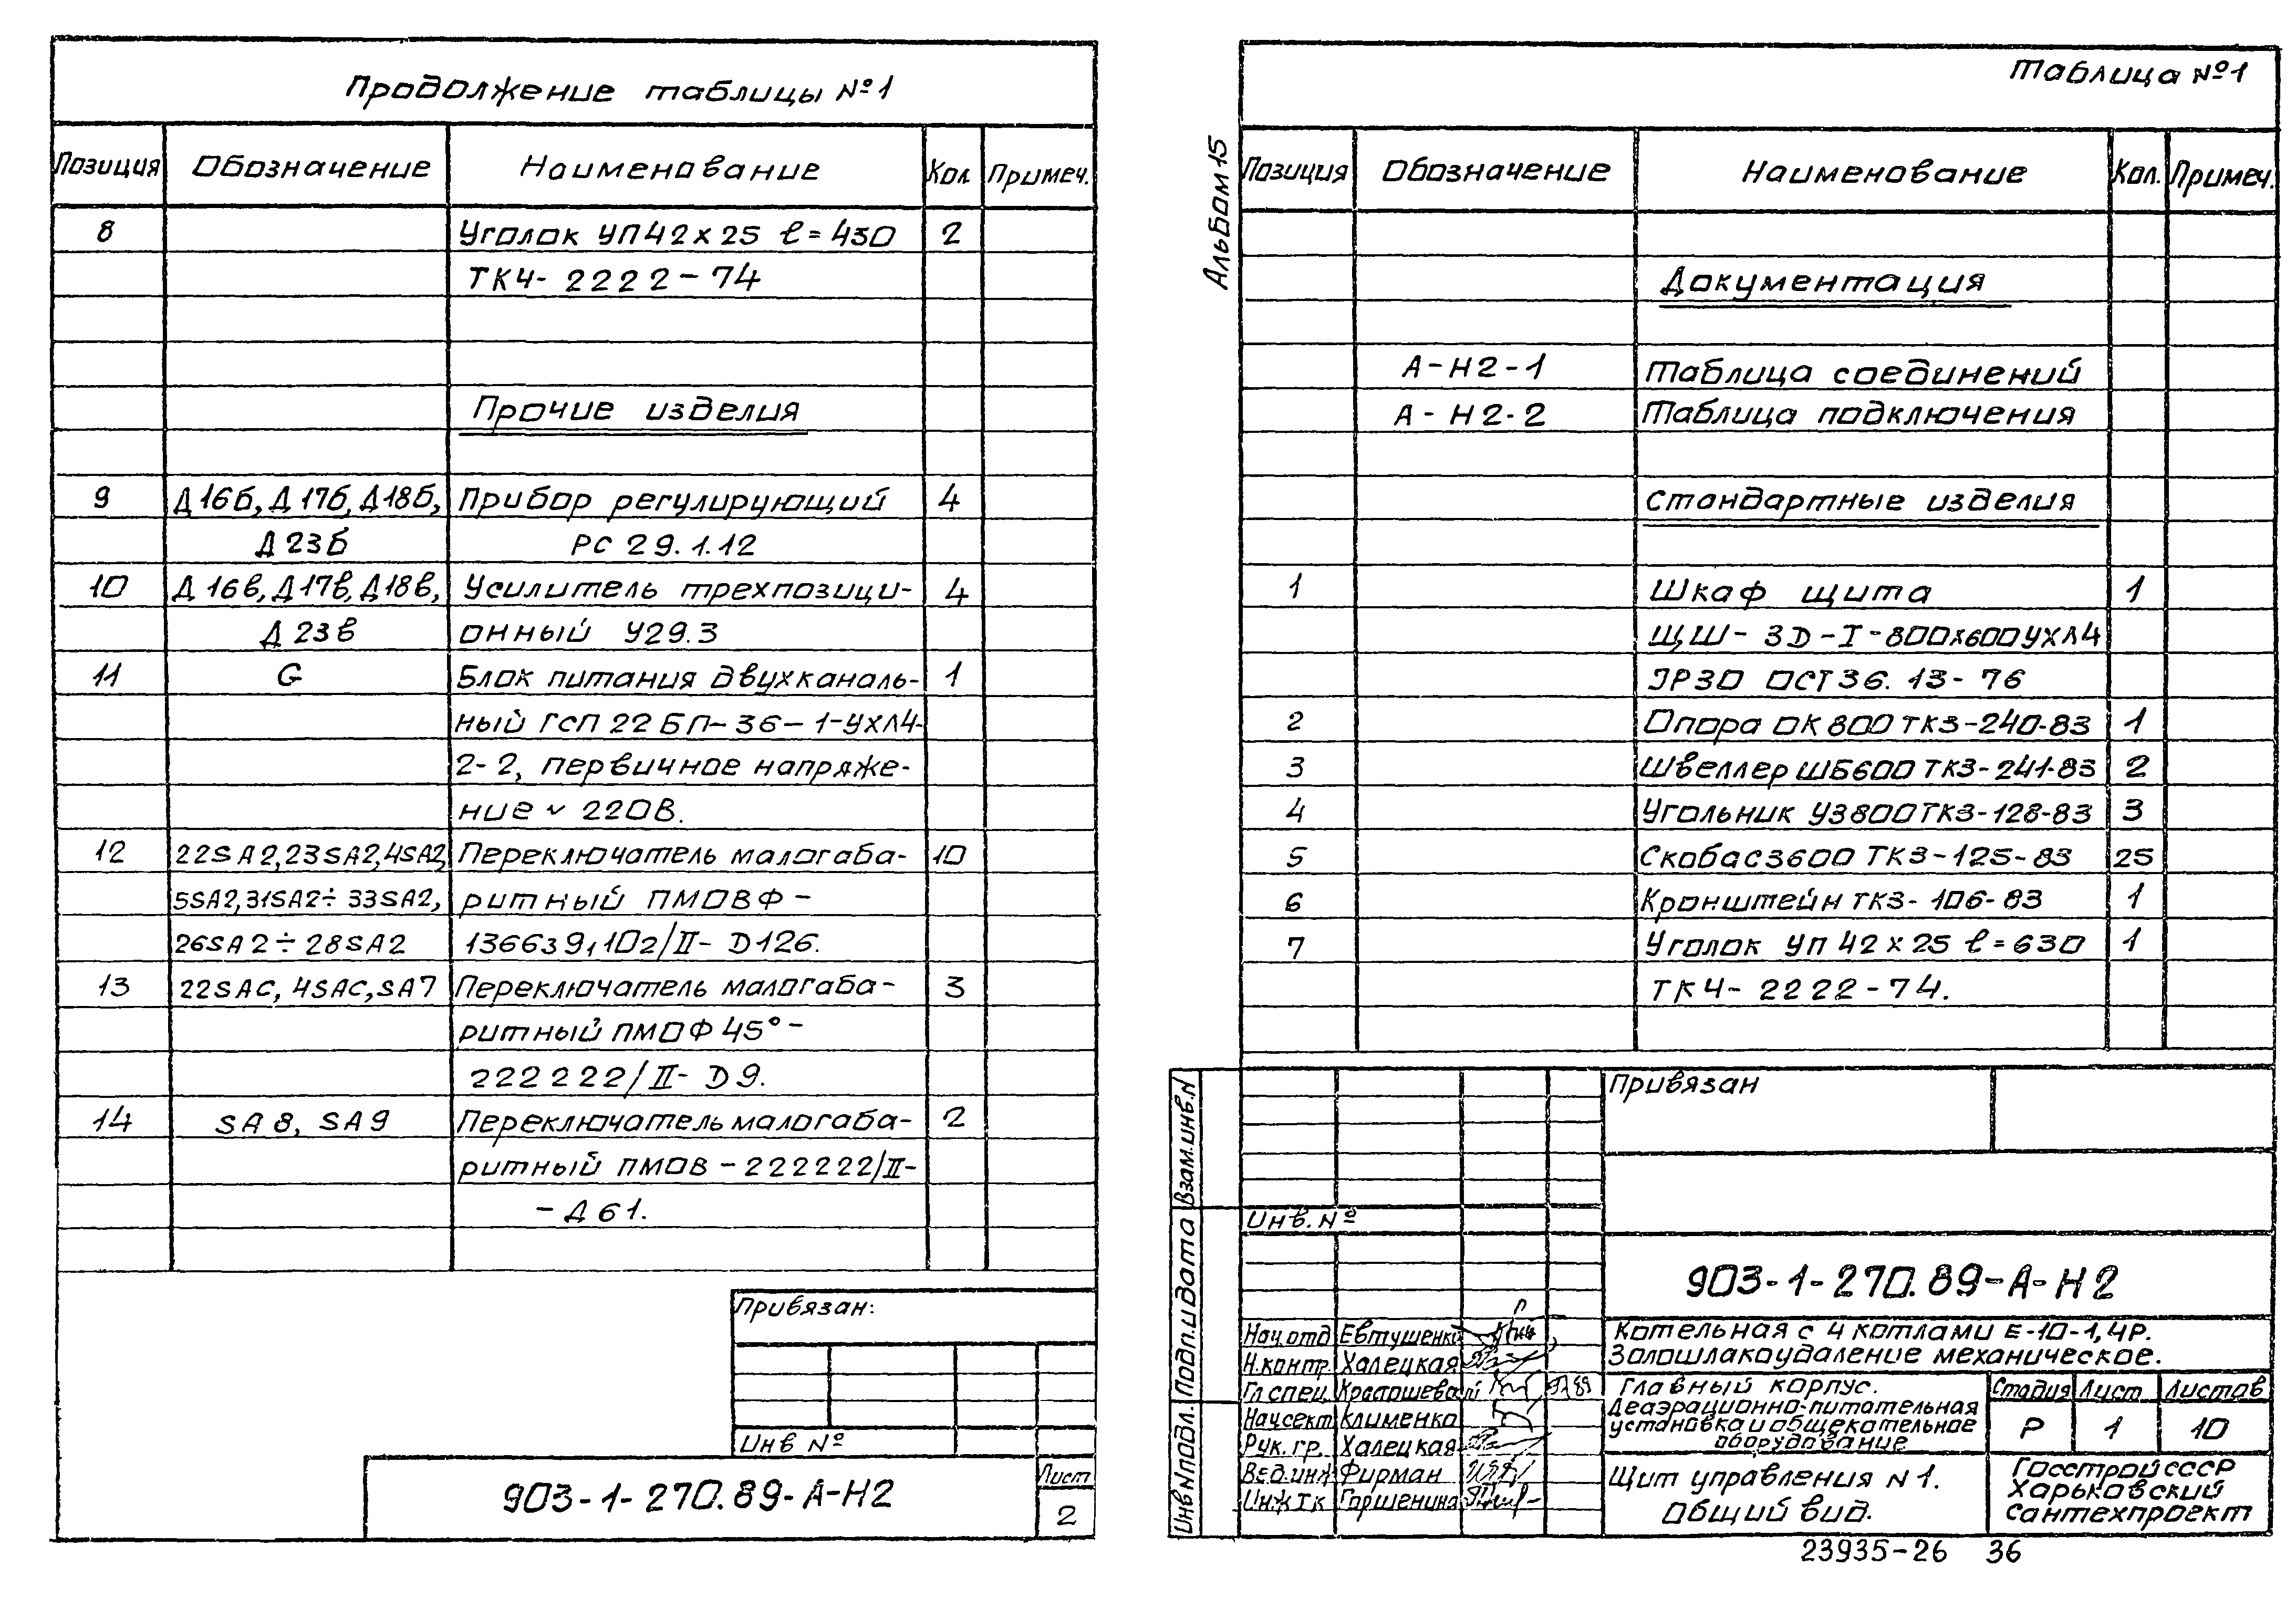 Продолжение таблицы №1
Позиция Обозначение Наименование Кол. Примеч.
8 Уголок УП42х25 ℓ=430 2
ТК4-2222-74
Прочие изделия
9 Д16б, Д17б, Д18б, Прибор регулирующий 4
Д23б РС 29.1.12
10 Д16в, Д17в, Д18в, Усилитель трехпозици- 4
Д23в онный У29.3
11 G Блок питания двухканаль- 1
ный ГСП 22БП-36-1-УХЛ4-
2-2, первичное напряже-
ние ~ 220В.
12 22SA2, 23SA2, 4SA2, Переключатель малогаба- 10
5SA2, 31SA2÷33SA2, ритный ПМОВФ-
26SA2÷28SA2 136639,102/II-D126.
13 22SAC, 4SAC, SA7 Переключатель малогаба- 3
ритный ПМОФ45°-
222222/II-D9.
14 SA8, SA9 Переключатель малогаба- 2
ритный ПМОВ-222222/II-
-Д61.
Привязан:
Инв №
903-1-270.89-А-Н2
Лист
2
Альбом 15
Таблица №1
Позиция Обозначение Наименование Кол. Примеч.
Документация
А-Н2-1 Таблица соединений
А-Н2-2 Таблица подключения
Стандартные изделия
1 Шкаф щита 1
ЩШ-ЗD-I-800х600УХЛ4
IP30 ОСТ36.13-76
2 Опора ОК800 ТК3-240-83 1
3 Швеллер ШБ600 ТК3-241-83 2
4 Угольник У3800ТК3-128-83 3
5 Скоба С3600 ТК3-125-83 25
6 Кронштейн ТК3-106-83 1
7 Уголок УП 42х25 ℓ=630 1
ТК4-2222-74.
Привязан
Инв. №
903-1-270.89-А-Н2
Котельная с 4 котлами Е-10-1,4Р.
Золошлакоудаление механическое.
Нач.отд Евтушенко
Н.контр. Халецкая
Гл.спец. Крапошевский
Нач.сект Клименко
Рук.гр. Халецкая
Вед.инж Фирман
Инж I к Горшенина
Главный корпус.
Деаэрационно-питательная
установка и общекотельное
оборудование
Стадия Лист Листов
Р 1 10
Щит управления №1.
Общий вид.
Госстрой СССР
Харьковский
Сантехпроект
Взам.инв.№
Подп. и дата
Инв № подл.
23935-26 36